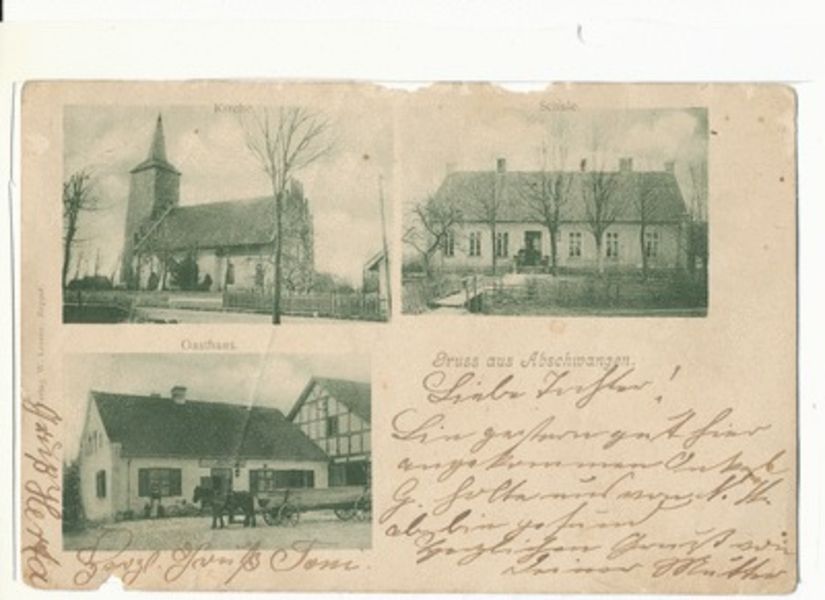 Kirche.
Schule.
Gasthaus.
Gruss aus Abschwangen.
Liebe Tochter!
Bin gestern gut hier
angekommen Onkel
G. holte uns von
ab bin gesund
Herzlichen Gruß von
Deiner Mutter
Herzl. Gruß Toni.
Gruß Herta